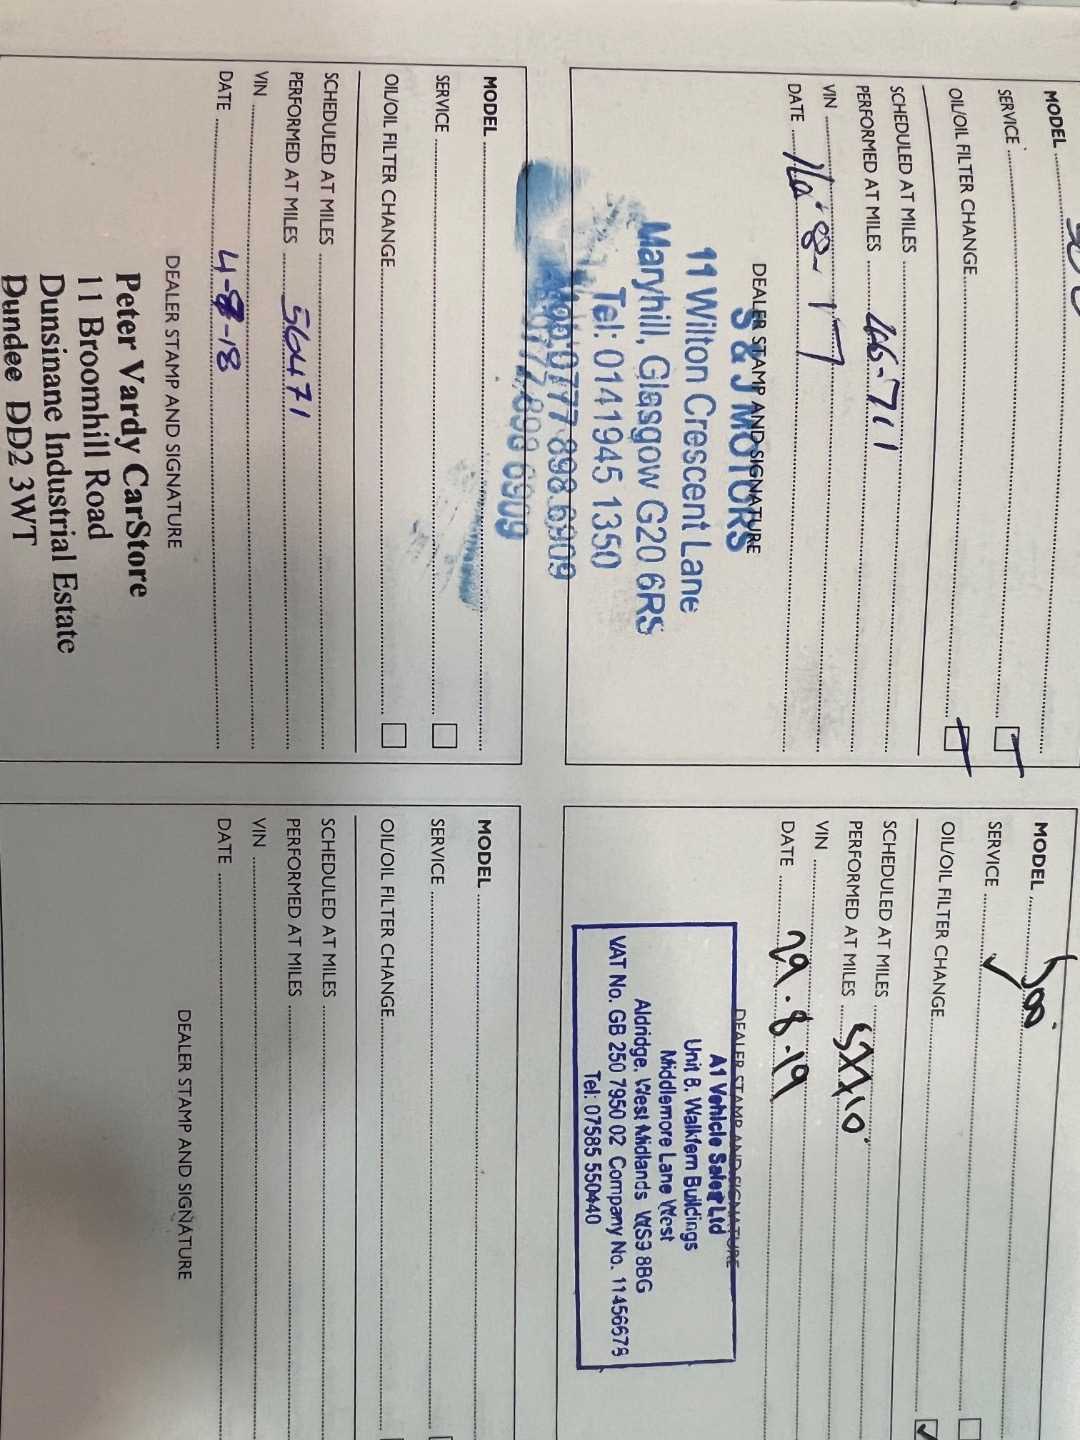 MODEL
SERVICE
OIL/OIL FILTER CHANGE
SCHEDULED AT MILES
PERFORMED AT MILES 46-711
VIN
DATE
DEALER STAMP AND SIGNATURE
S & J MOTORS
11 Wilton Crescent Lane
Maryhill, Glasgow G20 6RS
Tel: 0141 945 1350
Mob:0777 898 6909
0777 898 6909
MODEL
SERVICE
OIL/OIL FILTER CHANGE
SCHEDULED AT MILES
PERFORMED AT MILES 56471
VIN
DATE 4-8-18
DEALER STAMP AND SIGNATURE
Peter Vardy CarStore
11 Broomhill Road
Dunsinane Industrial Estate
Dundee DD2 3WT
MODEL
SERVICE
OIL/OIL FILTER CHANGE
SCHEDULED AT MILES
PERFORMED AT MILES
VIN
DATE 29.8.19
DEALER STAMP AND SIGNATURE
A1 Vehicle Sales Ltd
Unit B, Walkfern Buildings
Middlemore Lane West
Aldridge, West Midlands WS9 8BG
VAT No. GB 250 7950 02 Company No. 11456678
Tel: 07585 550440
MODEL
SERVICE
OIL/OIL FILTER CHANGE
SCHEDULED AT MILES
PERFORMED AT MILES
VIN
DATE
DEALER STAMP AND SIGNATURE